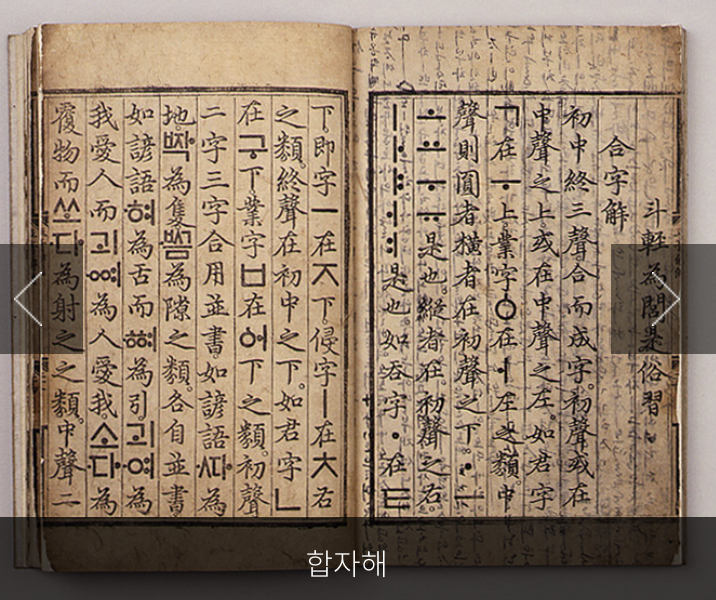 斗輕為閭是俗習
合字解
初中終三聲合而成字。初聲或在
中聲之上或在中聲之左。如君字
ㄱ在ㅜ上業字ㆁ在ㅓ左之類。中
聲則圓者橫者在初聲之下。ㆍㅡ
ㅗㅛㅜㅠ是也。縱者在初聲之右。
ㅣㅏㅑㅓㅕ是也。如呑字ㆍ在ㅌ
下。即字ㅡ在ㅈ下。侵字ㅣ在ㅊ右
之類。終聲在初中之下。如君字ㄴ
在구下業字ㅂ在ᅌᅥ下之類。初聲
二字三字合用並書如諺語ᄯᅡ為
地ᄧᅡᆨ為隻ᄢᅳᆷ為隙之類。各自並書
如諺語혀為舌而ᅘᅧ為引괴여為
我愛人而괴ᅇᅧ為人愛我소다為
覆物而쏘다為射之之類。中聲二
합자해